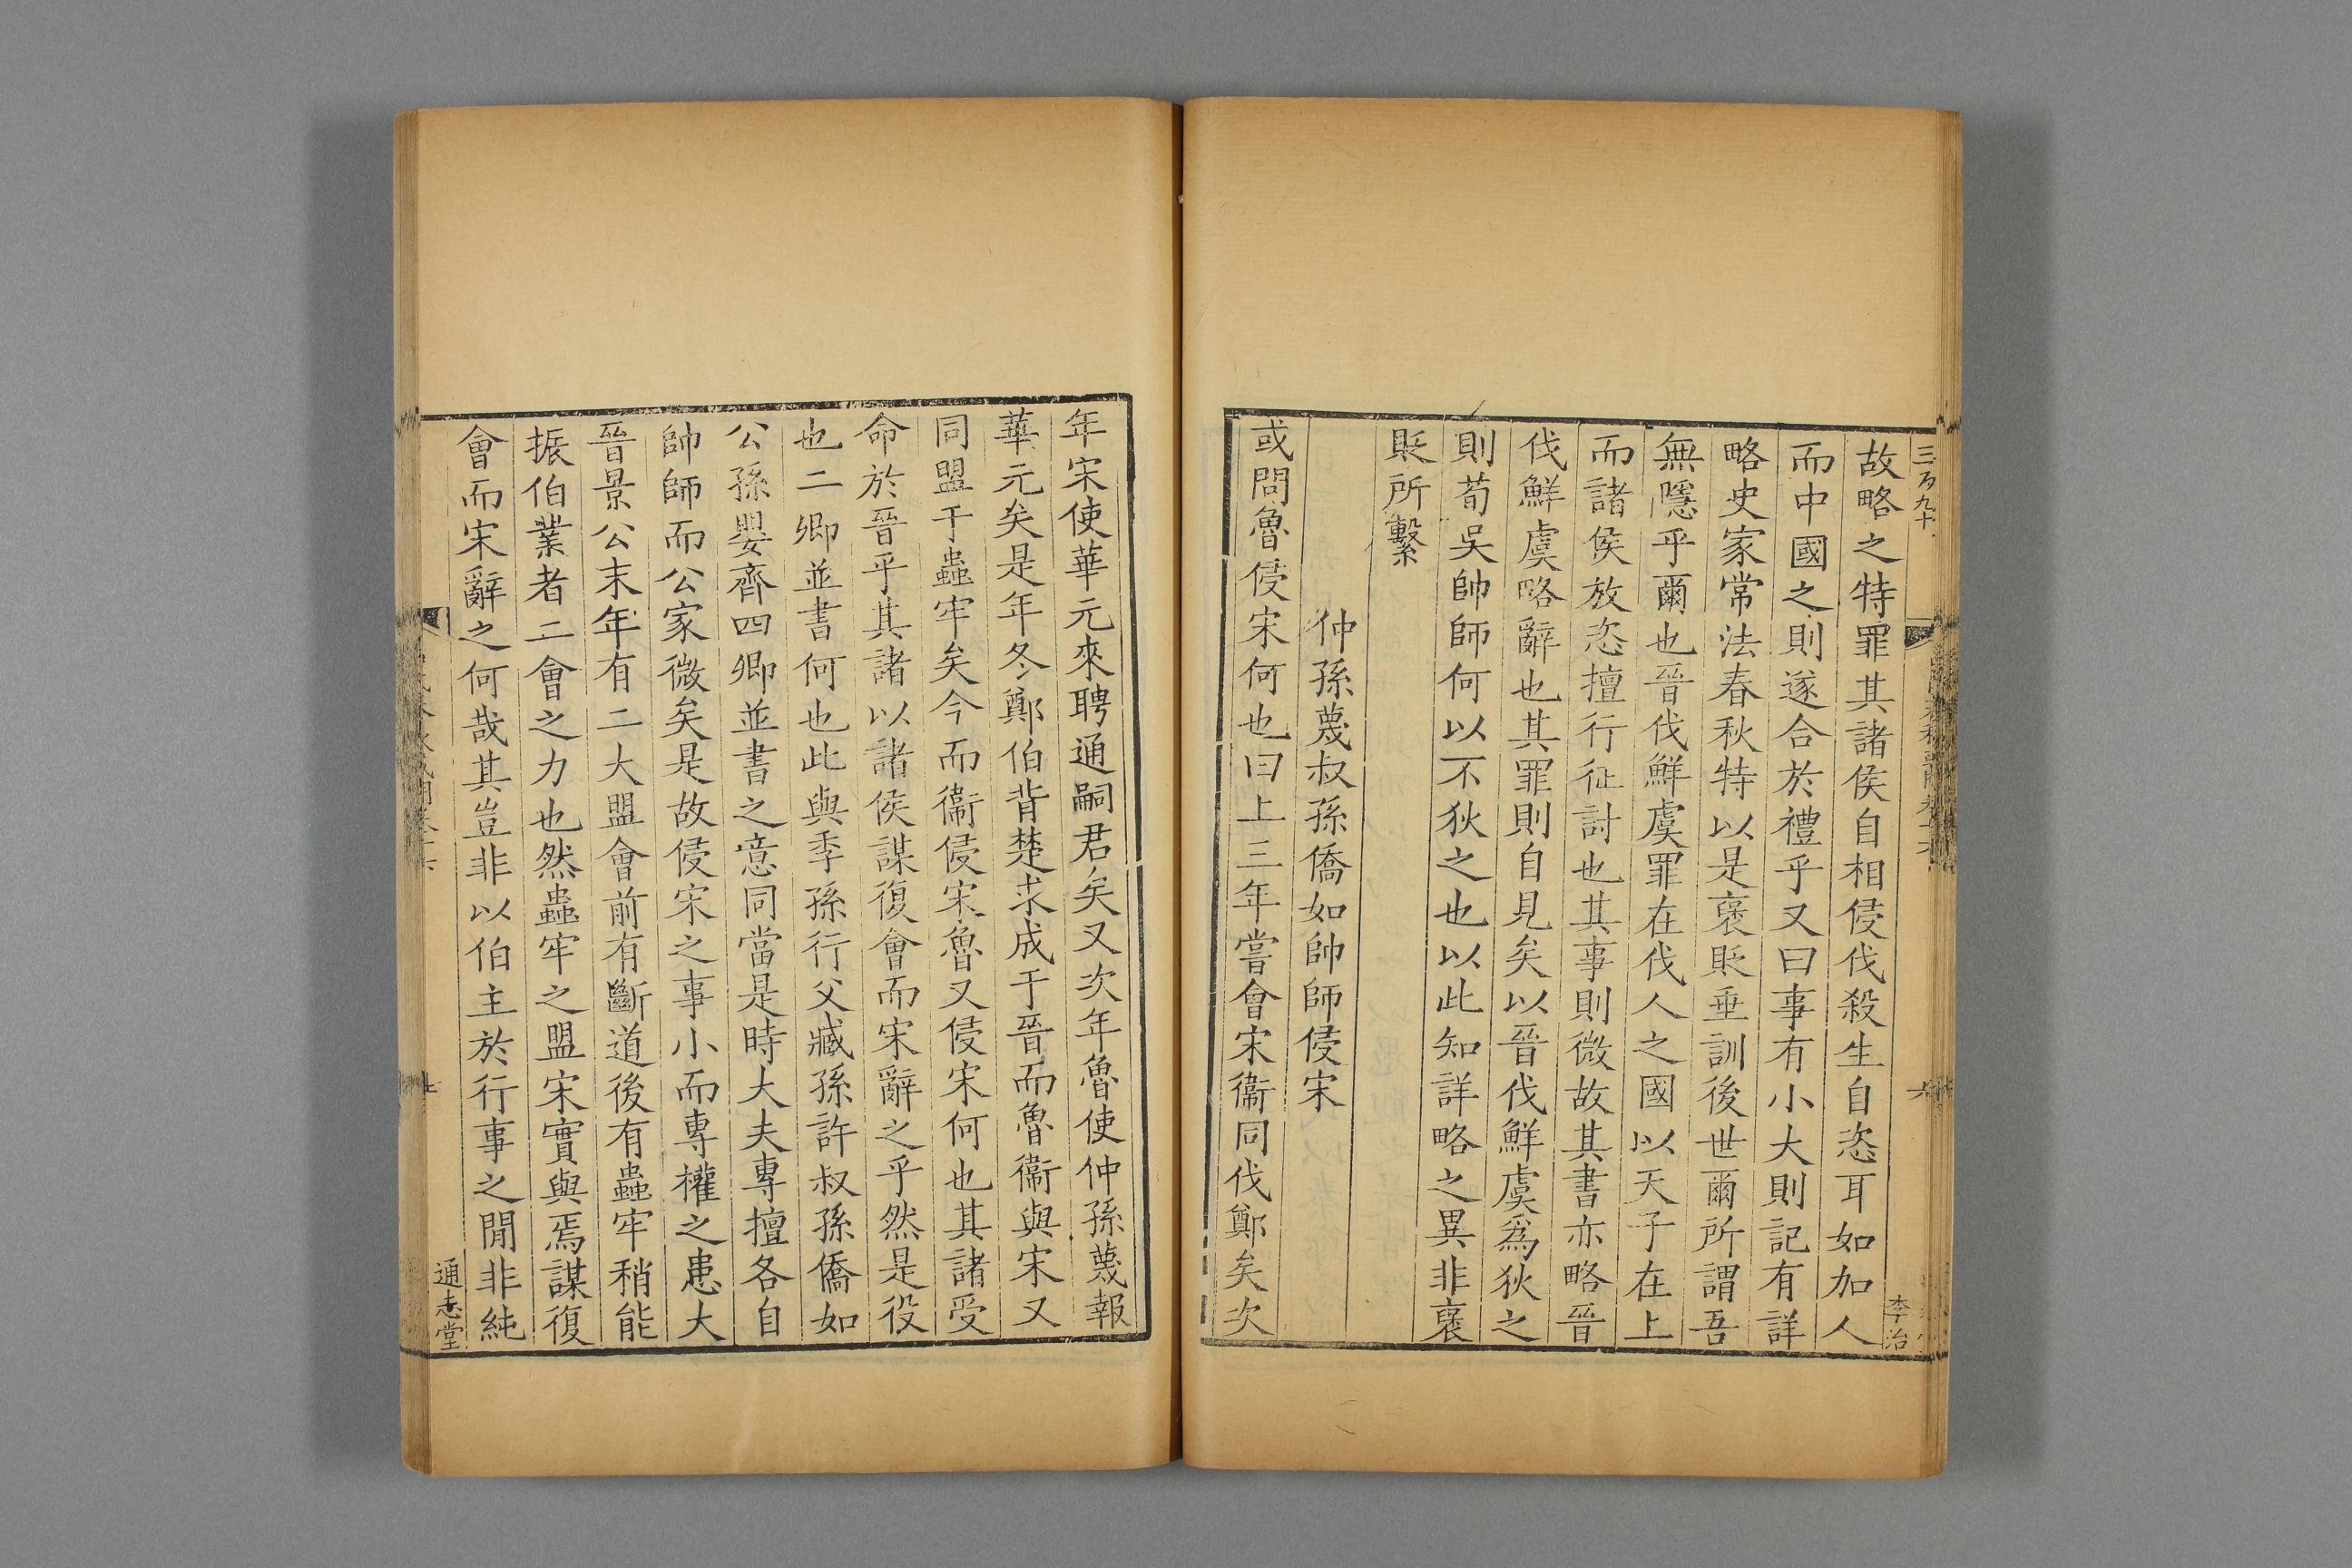 三百九十
李治
故略之特罪其諸侯自相侵伐殺生自恣耳如加人
而中國之則遂合於禮乎又曰事有小大則記有詳
略史家常法春秋特以是襃貶垂訓後世爾所謂吾
無隱乎爾也晉伐鮮虞罪在伐人之國以天子在上
而諸侯放恣擅行征討也其事則微故其書亦略晉
伐鮮虞略辭也其罪則自見矣以晉伐鮮虞爲狄之
則荀吳帥師何以不狄之也以此知詳略之異非襃
貶所繫
仲孫蔑叔孫僑如帥師侵宋
或問魯侵宋何也曰上三年嘗會宋衞同伐鄭矣次
年宋使華元來聘通嗣君矣又次年魯使仲孫蔑報
華元矣是年冬鄭伯背楚求成于晉而魯衞與宋又
同盟于蟲牢矣今而衞侵宋魯又侵宋何也其諸受
命於晉乎其諸以諸侯謀復會而宋辭之乎然是役
也二卿並書何也此與季孫行父臧孫許叔孫僑如
公孫嬰齊四卿並書之意同當是時大夫專擅各自
帥師而公家微矣是故侵宋之事小而專權之患大
晉景公末年有二大盟會前有斷道後有蟲牢稍能
振伯業者二會之力也然蟲牢之盟宋實與焉謀復
會而宋辭之何哉其豈非以伯主於行事之閒非純
通志堂